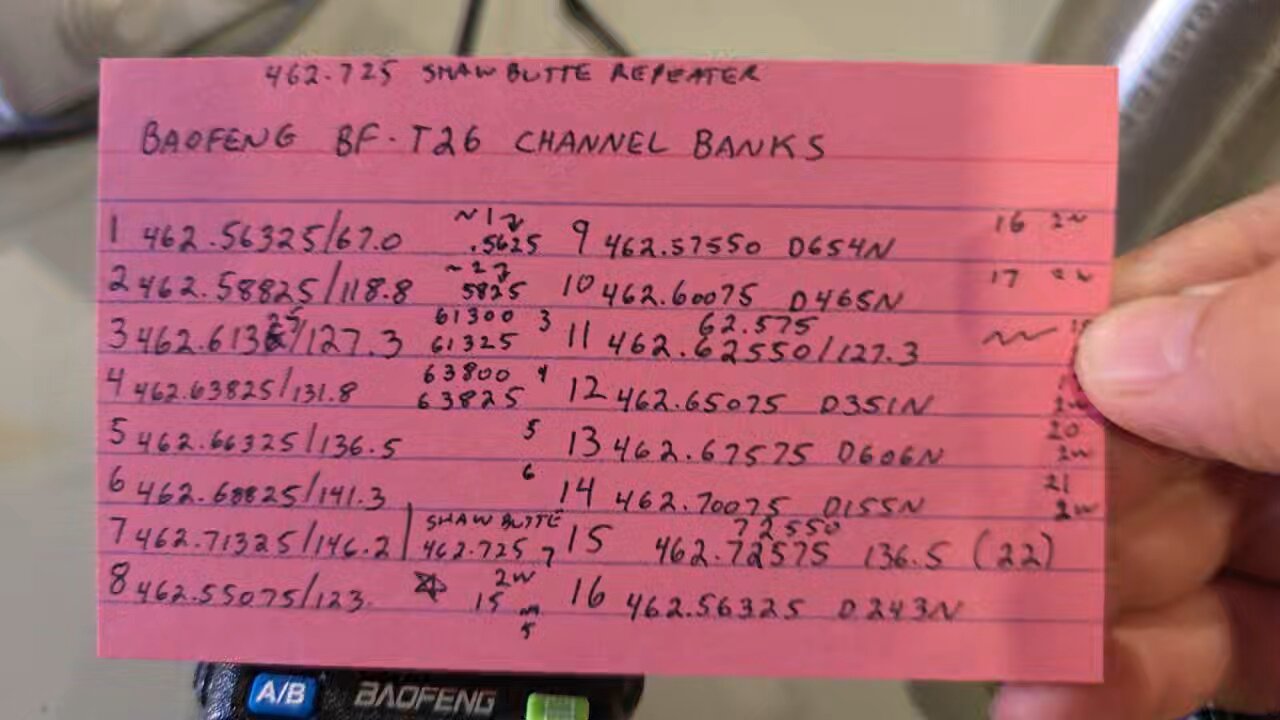 462.725 SHAW BUTTE REPEATER
BAOFENG BF-T26 CHANNEL BANKS
~1
1 462.56325/67.0 .5625 9 462.57550 D654N 16 2W
~2
2 462.58825/118.8 5825 10 462.60075 D465N 17 2W
61300 3 62.575
3 462.613 /127.3 61325 11 462.62550/127.3
63800 4
4 462.63825/131.8 63825 12 462.65075 D351N
5 462.66325/136.5 5 13 462.67575 D606N 20 2W
6 462.68825/141.3 6 14 462.70075 D155N 21 2W
SHAW BUTTE 72550
7 462.71325/146.2 462.725 7 15 462.72575 136.5 (22)
2W
8 462.55075/123. 15 16 462.56325 D243N
5
A/B BAOFENG